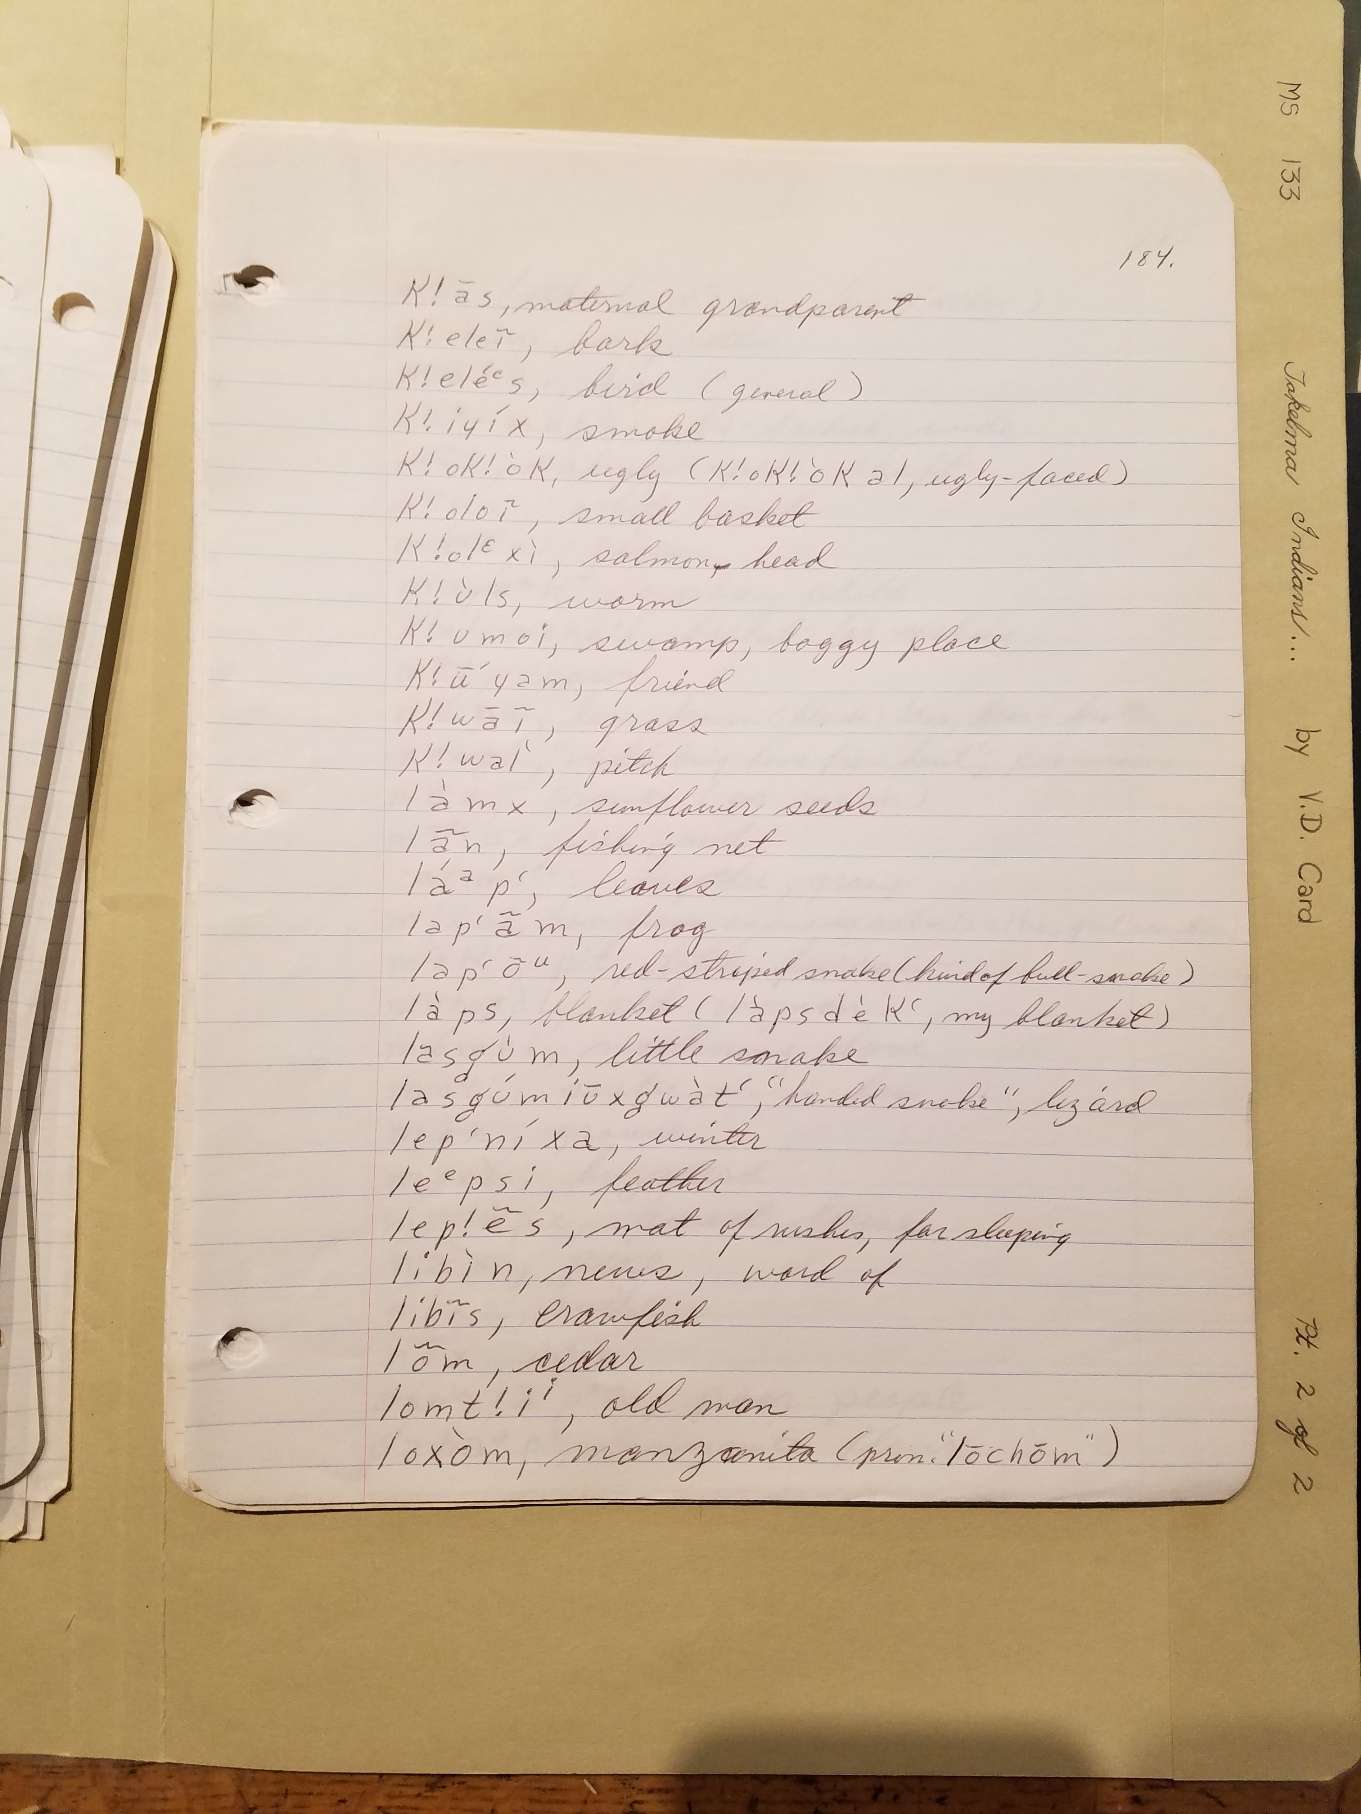 184.
K!ās, maternal grandparent
K!eleĩ, bark
K!eléᵋs, bird (general)
K!iyíx, smoke
K!oK!òK, ugly (K!oK!òK al, ugly-faced)
K!oloĩ, small basket
K!olᵋxì, salmon, head
K!ùls, worm
K!umoi, swamp, boggy place
K!ū́yam, friend
K!wāĩ, grass
K!wal‘, pitch
làmx, sunflower seeds
lãn, fishing net
láᵃp‘, leaves
lap‘ãm, frog
lap‘ōᵘ, red-striped snake (kind of bull-snake)
làps, blanket (làpsdèK‘, my blanket)
lasgùm, little snake
lasgúmiūxgwàt‘, "handed snake", lizard
lep‘níxa, winter
leᵉpsi, feather
lep!ẽs, mat of rushes, for sleeping
libìn, news, word of
libĩs, crawfish
lõm, cedar
lomt!iⁱ, old man
loxòm, manzanita (pron. "lōchōm")
MS 133 Takelma Indians... by V.D. Card Pt. 2 of 2